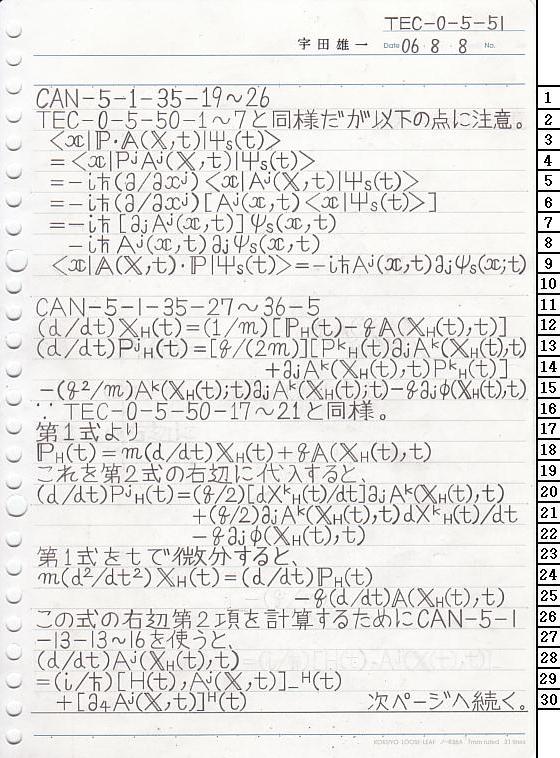 TEC-0-5-51
宇田雄一 Date 06・8・8 No.
CAN-5-1-35-19～26
TEC-0-5-50-1～7と同様だが以下の点に注意。
<𝕩|ℙ・𝔸(𝕏,t)|Ψs(t)>
=<𝕩|PʲAʲ(𝕏,t)|Ψs(t)>
=-iħ(∂/∂xʲ)<𝕩|Aʲ(𝕏,t)|Ψs(t)>
=-iħ(∂/∂xʲ)[Aʲ(𝕩,t)<𝕩|Ψs(t)>]
=-iħ[∂ⱼAʲ(𝕩,t)]ψs(𝕩,t)
-iħAʲ(𝕩,t)∂ⱼψs(𝕩,t)
<𝕩|𝔸(𝕏,t)・ℙ|Ψs(t)>=-iħAʲ(𝕩,t)∂ⱼψs(𝕩;t)
CAN-5-1-35-27～36-5
(d/dt)𝕏H(t)=(1/m)[ℙH(t)-q𝔸(𝕏H(t),t)]
(d/dt)PʲH(t)=[q/(2m)][PᵏH(t)∂ⱼAᵏ(𝕏H(t),t)
+∂ⱼAᵏ(𝕏H(t),t)PᵏH(t)]
-(q²/m)Aᵏ(𝕏H(t);t)∂ⱼAᵏ(𝕏H(t);t)-q∂ⱼφ(𝕏H(t),t)
∵ TEC-0-5-50-17～21と同様。
第1式より
ℙH(t)=m(d/dt)𝕏H(t)+q𝔸(𝕏H(t),t)
これを第2式の右辺に代入すると、
(d/dt)PʲH(t)=(q/2)[dXᵏH(t)/dt]∂ⱼAᵏ(𝕏H(t),t)
+(q/2)∂ⱼAᵏ(𝕏H(t),t)dXᵏH(t)/dt
-q∂ⱼφ(𝕏H(t),t)
第1式をtで微分すると、
m(d²/dt²)𝕏H(t)=(d/dt)ℙH(t)
-q(d/dt)𝔸(𝕏H(t),t)
この式の右辺第2項を計算するためにCAN-5-1
-13-13～16を使うと、
(d/dt)Aʲ(𝕏H(t),t)
=(i/ħ)[H(t),Aʲ(𝕏,t)]₋ᴴ(t)
+[∂₄Aʲ(𝕏,t)]ᴴ(t) 次ページへ続く。
1
2
3
4
5
6
7
8
9
10
11
12
13
14
15
16
17
18
19
20
21
22
23
24
25
26
27
28
29
30
KOKUYO LOOSE-LEAF ノ-836A 7mm ruled 31 lines